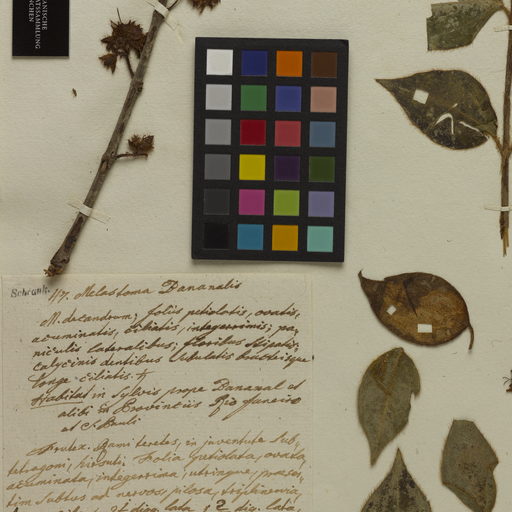 ANISCHE
ATSSAMMLUNG
NCHEN
Schrank.
117. Melastoma Bananalis
M. decandrum; foliis petiolatis, ovatis,
acuminatis, ciliatis, integerrimis; pa-
niculis lateralibus; floribus
calycinis dentibus bracteisque
longe ciliatis ♄
Habitat in Sylvis prope Bananal et
alibi in Provinciis Rio Janeiro
et S. Pauli
Frutex. Rami teretes, in juventute sub-
tetragoni, hirsuti. Folia petiolata, ovata
acuminata, integerrima, utrinque, praeser-
tim subtus ad nervos pilosa, triplinervia
dig. lata, 1 2 dig. lata,